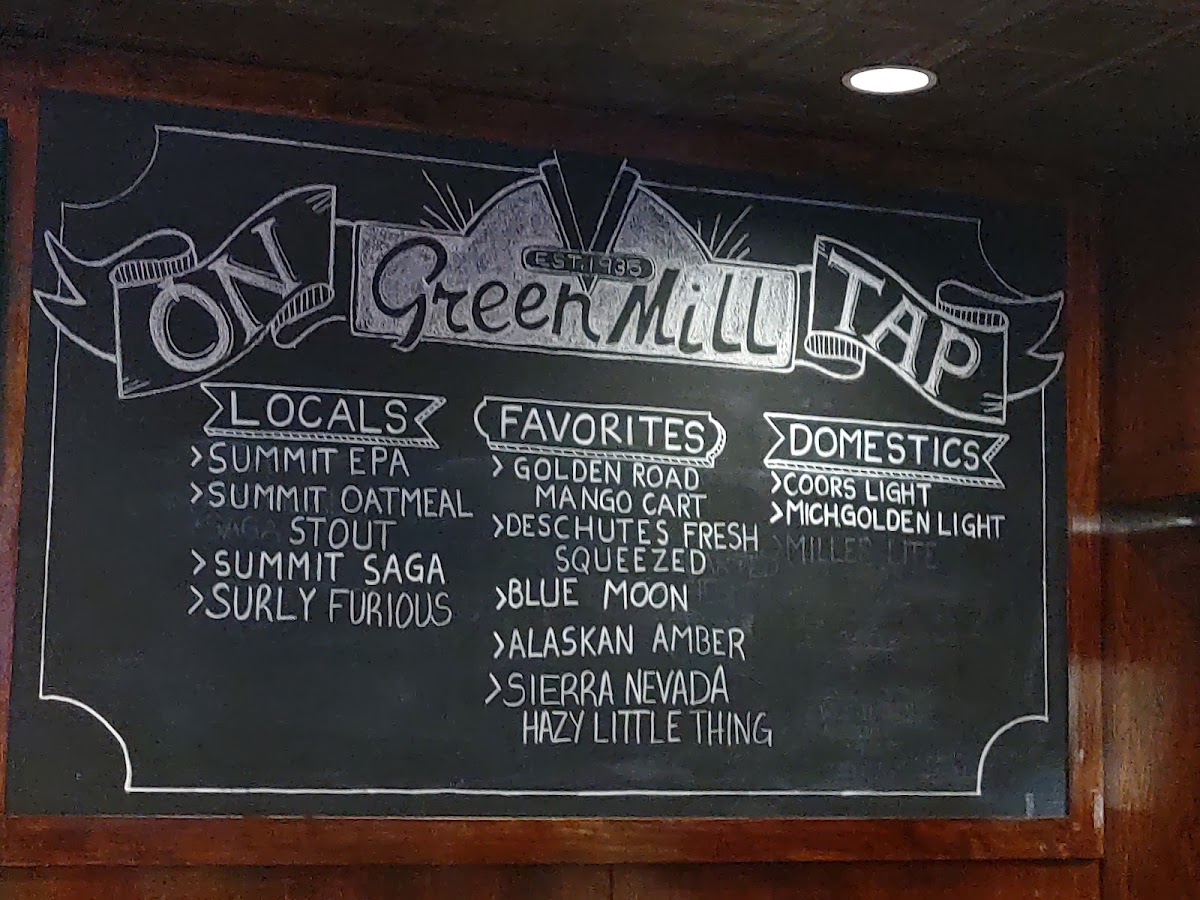 ON
Green Mill
EST. 1935
TAP
LOCALS
>SUMMIT EPA
>SUMMIT OATMEAL
STOUT
>SUMMIT SAGA
>SURLY FURIOUS
FAVORITES
> GOLDEN ROAD
MANGO CART
>DESCHUTES FRESH
SQUEEZED
>BLUE MOON
>ALASKAN AMBER
>SIERRA NEVADA
HAZY LITTLE THING
DOMESTICS
>COORS LIGHT
>MICH.GOLDEN LIGHT
>MILLER LITE